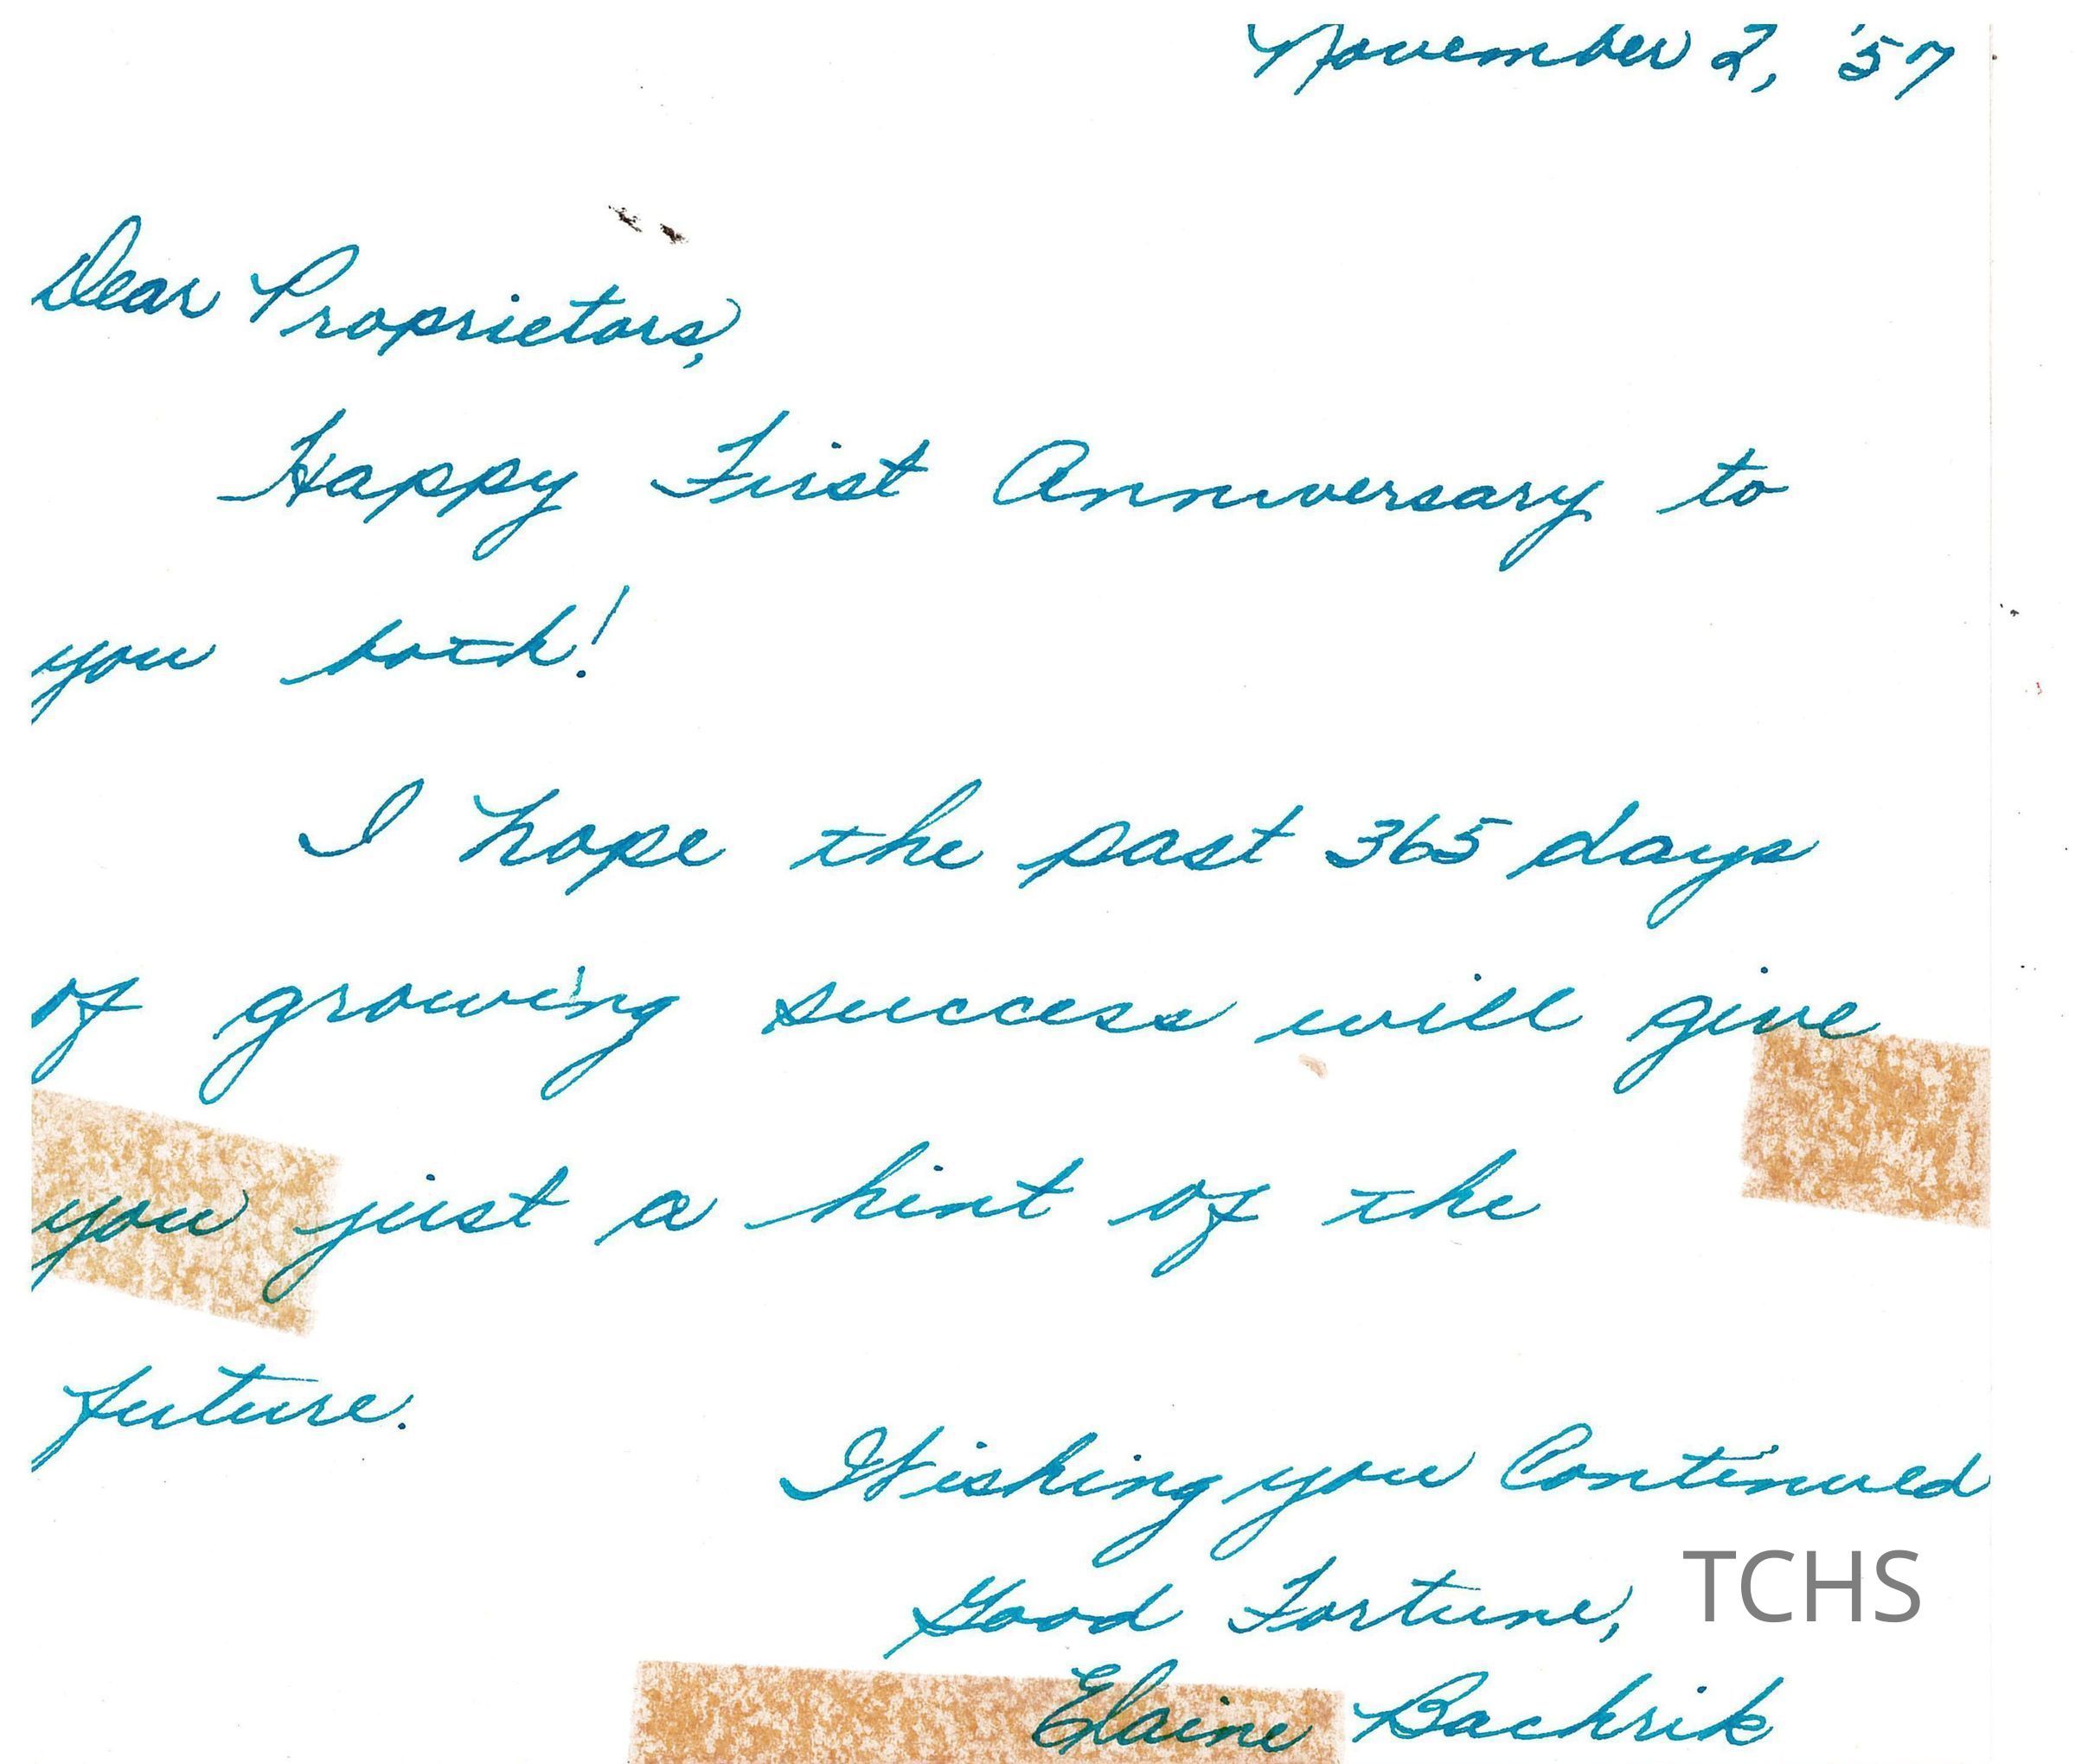 November 2, '57
Dear Proprietors,
Happy First Anniversary to
you both!
I hope the past 365 days
of growing success will give
you just a hint of the
future.
Wishing you Continued
Good Fortune,
TCHS
Elaine Bachrik